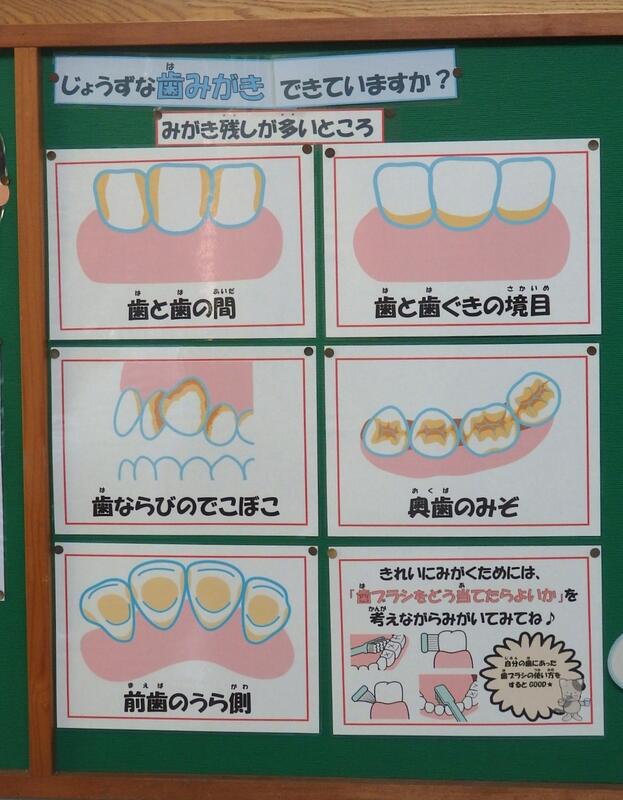 じょうずな歯みがき できていますか？
みがき残しが多いところ
歯と歯の間
歯と歯ぐきの境目
歯ならびのでこぼこ
奥歯のみぞ
前歯のうら側
きれいにみがくためには、
「歯ブラシをどう当てたらよいか」を
考えながらみがいてみてね♪
自分の歯にあった
歯ブラシの使い方を
するとGOOD★